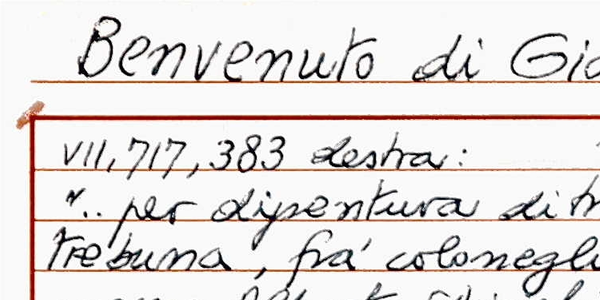 Benvenuto di Gio
VII, 717, 383 destra:
".. per dipentura di tr
trebuna, fra' colonegli